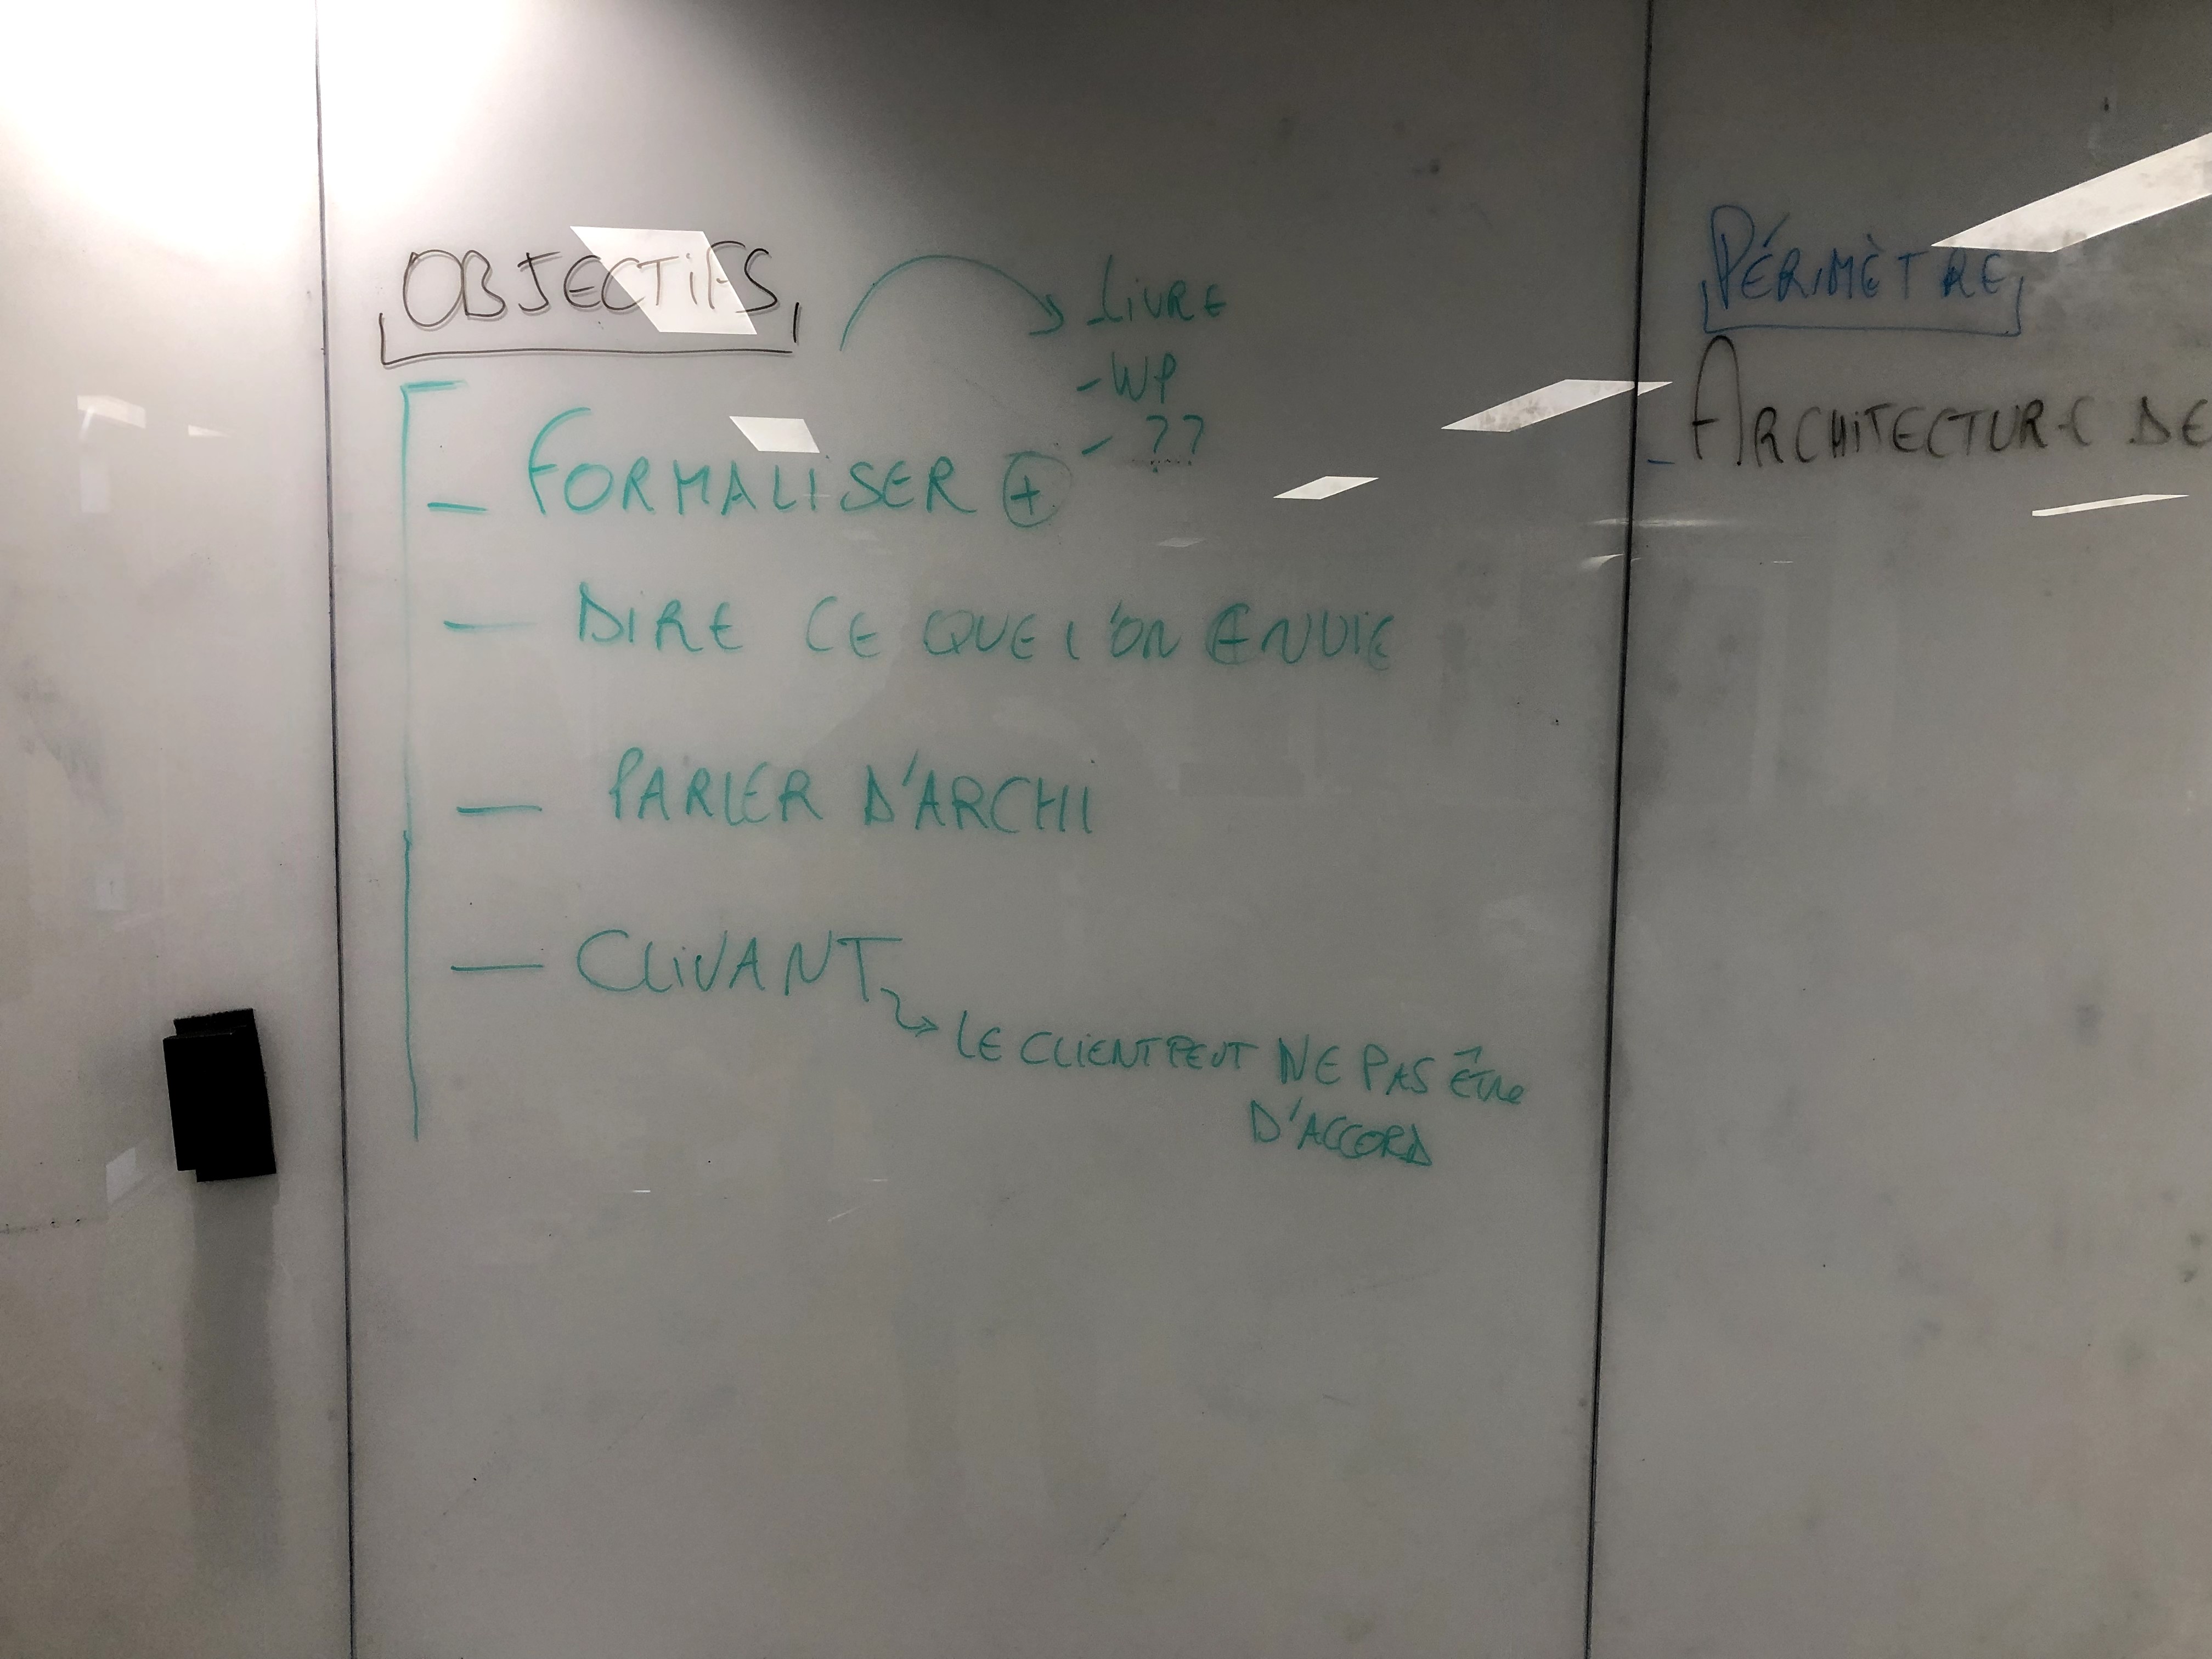 OBJECTIFS
- LIVRE
- WP
- ??
- FORMALISER +
- DIRE CE QUE L'ON ENVIE
- PARLER D'ARCHI
- CLIVANT
LE CLIENT PEUT NE PAS ÊTRE
D'ACCORD
PÉRIMÈTRE
- ARCHITECTURE DE